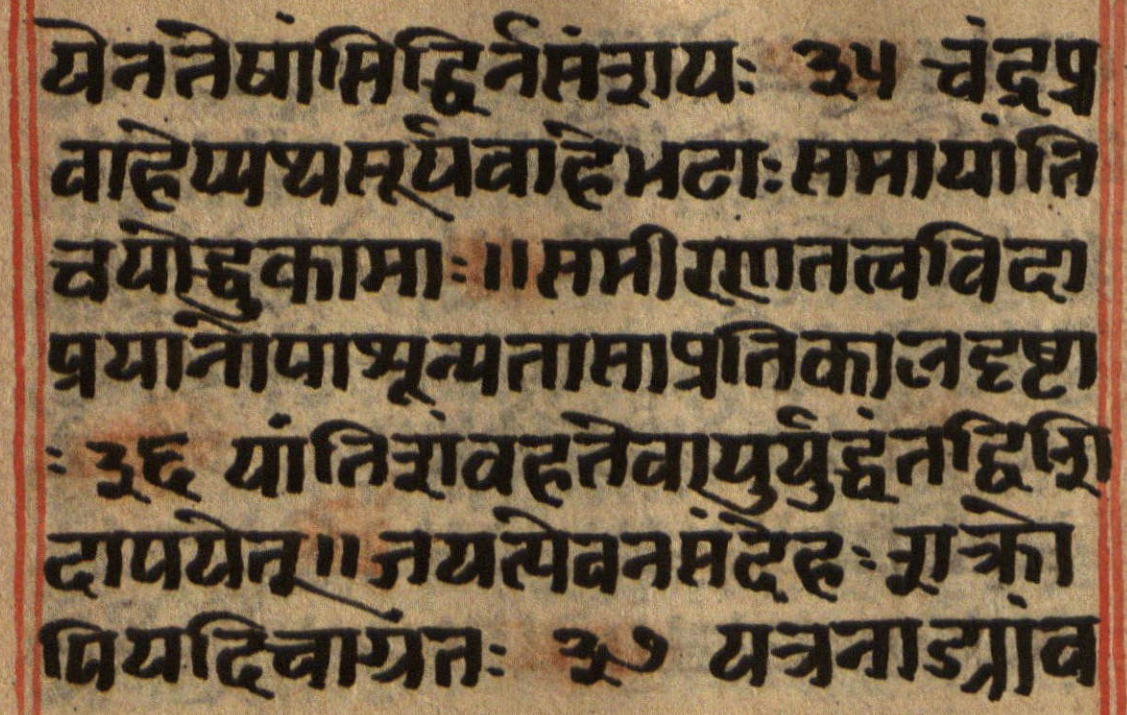 येनतेषांसिद्धिर्नसंशयः ३५ चंद्रप्र
वाहेप्यथसूर्यवाहेभटाःसमायांति
चयोद्धुकामाः॥समीरणतत्वविदा
प्रयानोपाश्रून्यतासाप्रतिकालदृष्टा
ः ३६ यांतिशंवहतेवायुर्युद्धंतद्दिशि
दापयेत्॥जयत्येवनसंदेहः शक्रो
पियदिचाग्रतः ३७ यत्रनाड्यांव